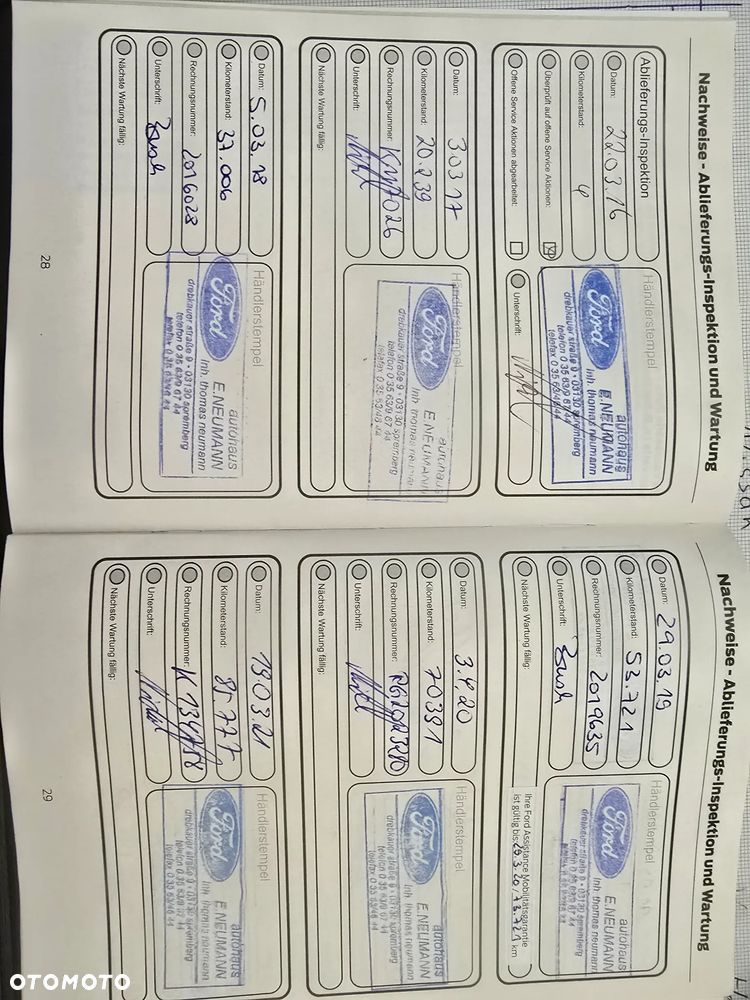 Nachweise - Ablieferungs-Inspektion und Wartung
Ablieferungs-Inspektion
Datum: 22.03.16
Kilometerstand: 4
Überprüft auf offene Service Aktionen:
Offene Service Aktionen abgearbeitet:
Händlerstempel
autohaus
E.NEUMANN
Inh. thomas neumann
Ford
drebkauer straße 9 • 03130 spremberg
telefon 0 35 63/9 67 44
telefax 0 35 63/49 44
Unterschrift:
Datum: 3.03.17
Kilometerstand: 20.239
Rechnungsnummer:
Unterschrift:
Nächste Wartung fällig:
Händlerstempel
autohaus
E.NEUMANN
Inh. thomas neumann
Ford
drebkauer straße 9 • 03130 spremberg
telefon 0 35 63/9 67 44
telefax 0 35 63/49 44
Datum: 5.03.18
Kilometerstand: 37.006
Rechnungsnummer: 2016028
Unterschrift:
Nächste Wartung fällig:
Händlerstempel
autohaus
E.NEUMANN
Inh. thomas neumann
Ford
drebkauer straße 9 • 03130 spremberg
telefon 0 35 63/9 67 44
telefax 0 35 63/49 44
28
Nachweise - Ablieferungs-Inspektion und Wartung
Datum: 29.03.19
Kilometerstand: 53.721
Rechnungsnummer: 2019635
Unterschrift:
Nächste Wartung fällig:
Händlerstempel
autohaus
E.NEUMANN
Inh. thomas neumann
Ford
drebkauer straße 9 • 03130 spremberg
telefon 0 35 63/9 67 44
Ihre Ford Assistance Mobilitätsgarantie
ist gültig bis: 29.3.20 / 73.721 km
Datum: 3.4.20
Kilometerstand: 70381
Rechnungsnummer:
Unterschrift:
Nächste Wartung fällig:
Händlerstempel
autohaus
E.NEUMANN
Inh. thomas neumann
Ford
drebkauer straße 9 • 03130 spremberg
telefon 0 35 63/9 67 44
telefax 0 35 63/49 44
Datum: 19.03.21
Kilometerstand: 85.777
Rechnungsnummer:
Unterschrift:
Nächste Wartung fällig:
Händlerstempel
autohaus
E.NEUMANN
Inh. thomas neumann
Ford
drebkauer straße 9 • 03130 spremberg
telefon 0 35 63/9 67 44
telefax 0 35 63/49 44
29
OTOMOTO